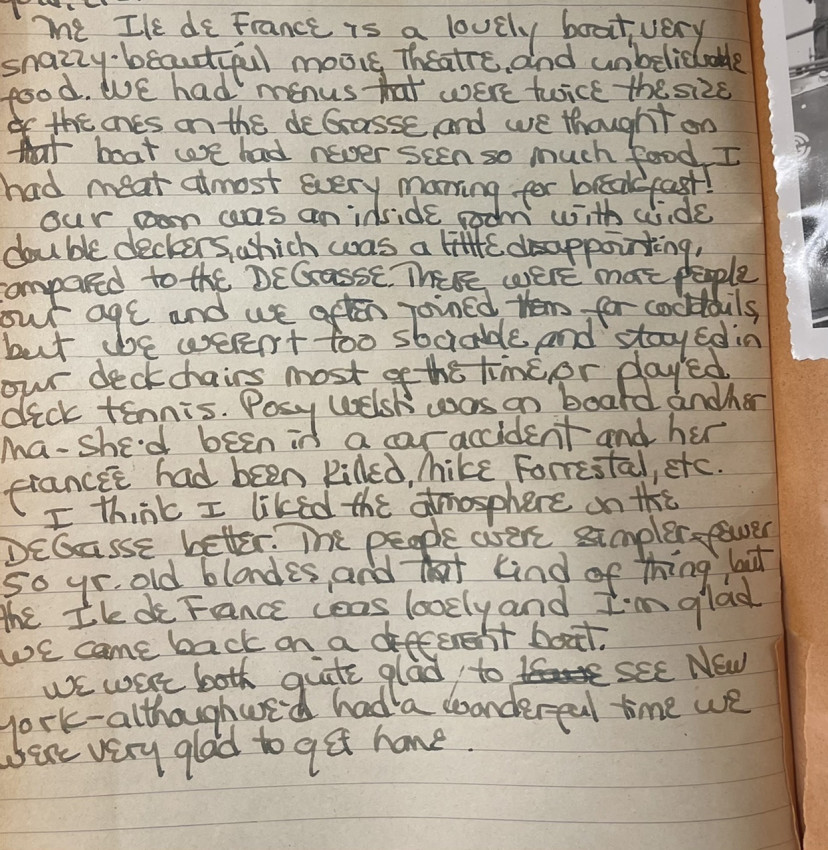 The Ile de France is a lovely boat, very
snazzy-beautiful movie theatre, and unbelievable
food. We had menus that were twice the size
of the ones on the de Grasse, and we thought on
that boat we had never seen so much food. I
had meat almost every morning for breakfast!
our room was an inside room with wide
double deckers, which was a little disappointing,
compared to the DeGrasse. There were more people
our age and we often joined them for cocktails,
but we weren't too sociable, and stayed in
our deck chairs most of the time, or played
deck tennis. Posy Welsh was on board and her
ma - she'd been in a car accident and her
fiancée had been killed, Mike Forrestal, etc.
I think I liked the atmosphere on the
DeGasse better. The people were simpler - fewer
50 yr. old blondes, and that kind of thing, but
the Ile de France was lovely and I'm glad
we came back on a different boat.
We were both quite glad to see New
York - although we'd had a wonderful time we
were very glad to get home.